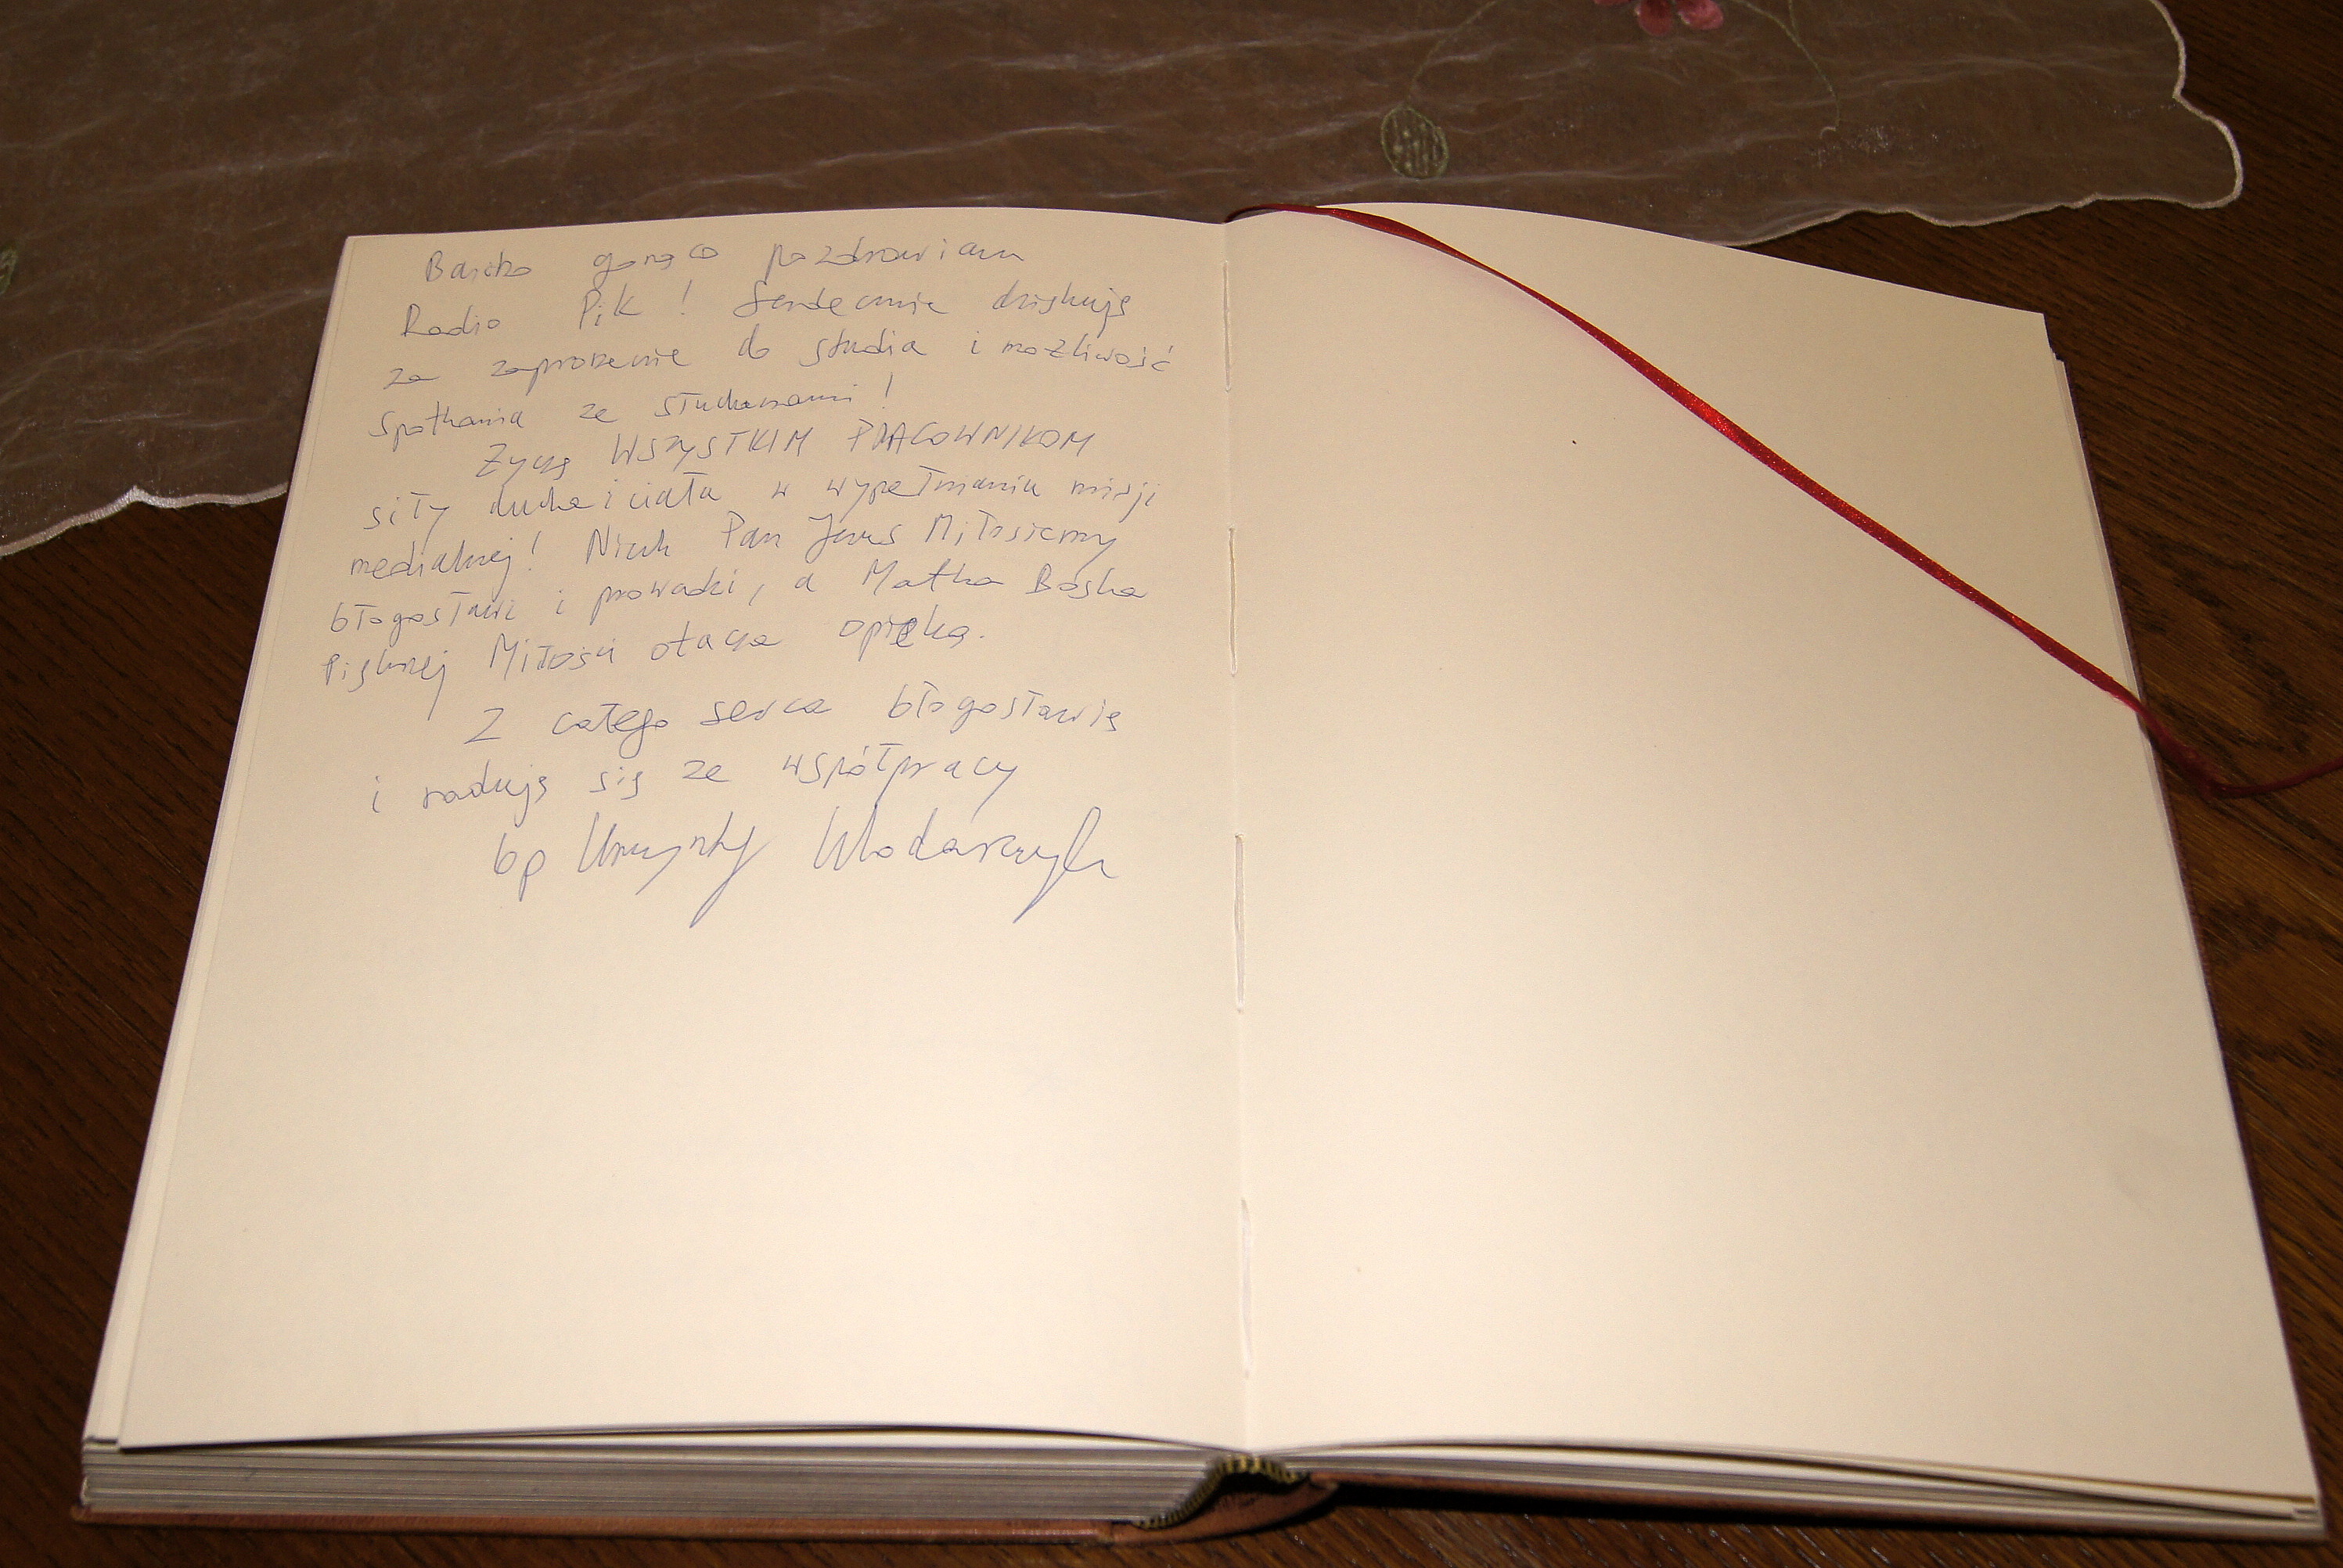 Bardzo gorąco pozdrawiam
Radio PiK! Serdecznie dziękuję
za zaproszenie do studia i możliwość
spotkania ze słuchaczami!
Życzę WSZYSTKIM PRACOWNIKOM
siły ducha i ciała w wypełnianiu misji
medialnej! Niech Pan Jezus Miłosierny
błogosławi i prowadzi, a Matka Boska
Pięknej Miłości otacza opieką.
Z całego serca błogosławię
i raduję się ze współpracy
bp Krzysztof Włodarczyk